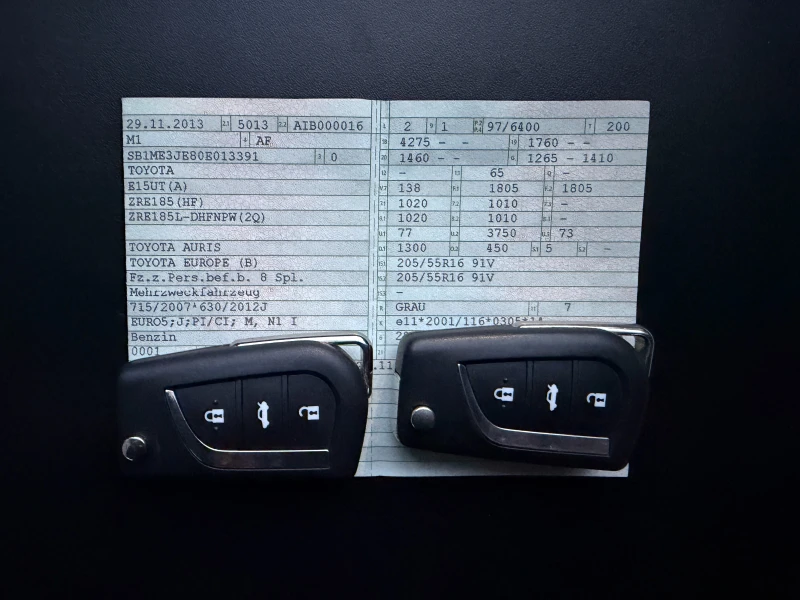 29.11.2013 2.1 5013 2.2 AIB000016
M1 4 AF
SB1ME3JE80E013391 3 0
TOYOTA
E15UT(A)
ZRE185(HF)
ZRE185L-DHFNPW(2Q)
TOYOTA AURIS
TOYOTA EUROPE (B)
Fz.z.Pers.bef.b. 8 Spl.
Mehrzweckfahrzeug
715/2007*630/2012J
EURO5;J;PI/CI; M, N1 I
Benzin
0001
2 9 1 97/6400 T 200
4275 - - 19 1760 - -
1460 - - G 1265 - 1410
- 65 -
138 1805 1805
1020 1010 -
1020 1010 -
77 3750 73
1300 450 S.1 5 -
205/55R16 91V
205/55R16 91V
-
GRAU 7
e11*2001/116*0305*